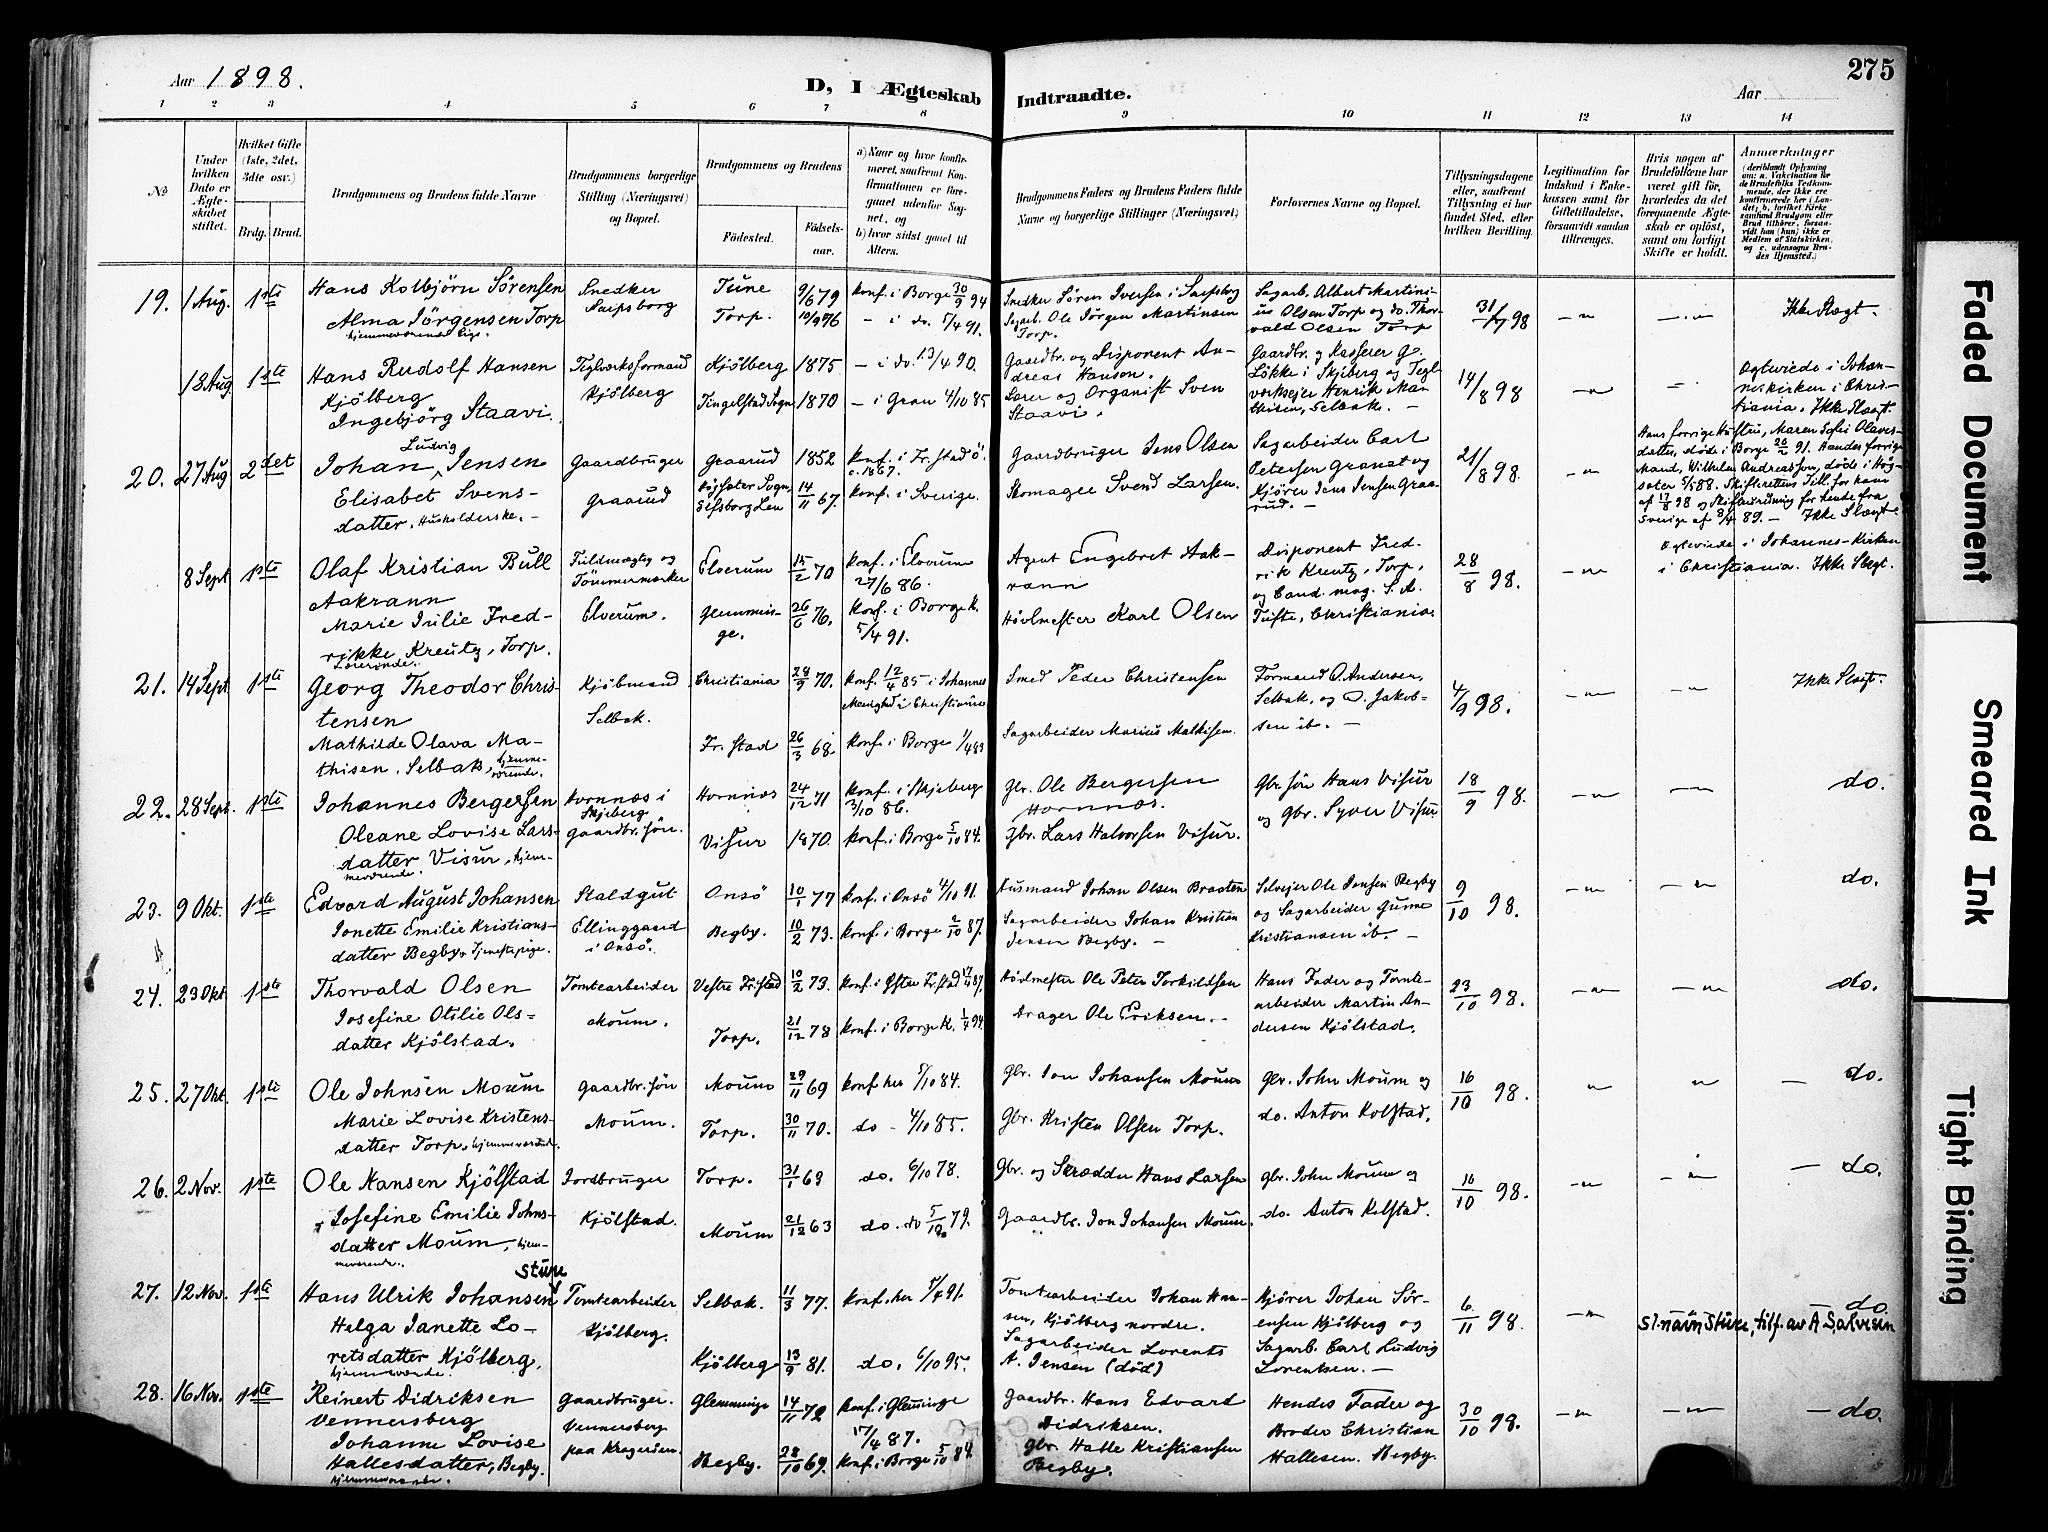 Aar 1898.
D, I Ægteskab Indtraadte.
Aar
275
1 2 3 4 5 6 7 8 9 10 11 12 13 14
No
Under hvilken Dato er Ægteskabet stiftet.
Hvilket Gifte (1ste, 2det, 3die osv.)
Brdg. Brud.
Brudgommens og Brudens fulde Navne
Brudgommens borgerlige Stilling (Næringsvei) og Bopæl.
Brudgommens og Brudens
Fødested. Fødselsaar.
a) Naar og hvor konfirmeret, saafremt Konfirmationen er foregaaet udenfor Sognet, og
b) hvor sidst gaaet til Alters.
Brudgommens Faders og Brudens Faders fulde Navne og borgerlige Stillinger (Næringsvei)
Forlovernes Navne og Bopæl.
Tillysningsdagene eller, saafremt Tillysning ei har fundet Sted, efter hvilken Bevilling.
Legitimation for Indskud i Enkekassen samt for Giftetilladelse, forsaavidt saadan tiltrænges.
Hvis nogen af Brudefolkene har været gift før, hvorledes da det foregaaende Ægteskab er opløst, samt om lovligt Skifte er holdt.
Anmærkninger
19. 1 Aug. 1ste Hans Kolbjörn Sörensen Snedker Sarpsborg Tune 9/6 79 konf. i Borge 30/9 94 Snedker Sören Iversen i Sarpsborg Sagarb. Albert Martinius Olsen Torp og do. Thorvald Olsen Torp 31/7 98 Ikke Slægt.
Alma Jörgensen Torp Torp. 10/9 76 - i do. 5/4 91. Sagarb. Ole Jörgen Martinsen Torp.
18 Aug 1ste Hans Rudolf Hansen Kjölberg Teglværksformand Kjölberg Kjölberg 1875 - i do. 13/4 90. Gaardbr. og Disponent Andreas Hansen. Gaardbr. og Kasserer G. Lökke i Skjeberg og Teglverksejer Henrik Mathisen, Selbak. 14/8 98 Ægteviede i Johanneskirken i Christiania. Ikke Slægt.
Ingebjörg Staavi. Tingelstad Sogn 1870 - i Gran 4/10 85 Lærer og Organist Sven Staavi.
20. 27 Aug 2det Johan Ludvig Jensen Gaardbruger Graarud Graarud 1852 konf. i Fr.stad ö. c. 1867. Gaardbruger Jens Olsen Sagarbeider Carl Petersen Granat og Kjörer Jens Jensen Graarud. 21/8 98.
Elisabet Svensdatter, Husholderske. 14/11 67. konf. i Sverige. Skomager Svend Larsen.
Hans forrige Hustru, Maren Sofie Olavesdatter, döde i Borge 26/2 91. Hendes forrige Mand, Wilhelm Andreasson, döde i Högsäter 5/5 88. Skifterettens Till. for ham af 17/8 98 og Skifteordning for hende fra Sverige af 3/4 89. - Ikke Slægt.
8 Sept 1ste Olaf Kristian Bull Aakrann Fuldmægtig og Tömmermærker Elverum. Elverum 15/2 70 konf. i Elverum 27/6 86. Agent Engebret Aakrann Disponent Fredrik Kreutz, Torp, og Cand. mag. S. A. Tufte, Christiania. 28/8 98. Ægteviede i Johannes-Kirken i Christiania. Ikke Slægt.
Marie Julie Fredrikke Kreutz, Torp. Lærerinde. Glemminge. 26/6 76. konf. i Borge K. 5/4 91. Hövlmester Karl Olsen
21. 14 Sept 1ste Georg Theodor Christensen Kjöbmand Selbak. Christiania 28/9 70. konf. 12/4 85 i Johannes Menighed i Christiania Smed Peder Christensen Formand O. Andersen, Selbak, og O. Jakobsen ib. - 4/9 98. Ikke Slægt.
Mathilde Olava Mathisen, Selbak, hjemmeværende. Fr. stad 26/3 68. konf. i Borge 1/4 83 Sagarbeider Marius Mathisen.
22. 28 Sept. 1ste Johannes Bergersen Hornnæs i Skjeberg gaardbr. sön. Hornnæs 24/12 71 konf. i Skjeberg 3/10 86. Gbr. Ole Bergersen Hornnæs. Gbr. sön Hans Visur og gbr. Syver Visur. 18/9 98. do.
Oleane Lovise Larsdatter Visur, hjemmeværende. Visur 1870. konf. i Borge 5/10 84. Gbr. Lars Halvorsen Visur.
23. 9 Okt. 1ste Edvard August Johansen Staldgut Ellinggaard i Onsö. Onsö 10/1 77 konf. i Onsö 4/10 91. Husmand Johan Olsen Braaten Selvejer Ole Jensen Begby og Sagarbeider Gunne Kristiansen ib. - 9/10 98. do.
Jonette Emilie Kristiansdatter Begby, Tjenestepige. Begby. 10/2 73. konf. i Borge 2/10 87. Sagarbeider Johan Kristian Jensen Begby. -
24. 23 Okt 1ste Thorvald Olsen Tomtearbeider Moum. Vestre Fr.stad 10/2 73. Hövlmester Ole Peter Torkildsen Hans Fader og Tomtearbeider Martin Andersen Kjölstad. 23/10 98. do.
Josefine Otilie Olsdatter Kjölstad. Torp. 21/12 78 konf. i Borge K. 1/4 94. Drager Ole Eriksen. -
25. 27 Okt. 1ste Ole Johnsen Moum Gaardbr. sön Moum. Moum 29/11 69 konf. her 5/10 84. Gbr. Jon Johansen Moum Gbr. John Moum og do. Anton Kolstad. 16/10 98. do.
Marie Lovise Kristensdatter Torp, hjemmeværende. Torp. 30/11 70. do - 4/10 85. Gbr. Kristen Olsen Torp.
26. 2 Nov. 1ste Ole Hansen Kjölstad Jordbruger Kjölstad. Torp. 31/1 63 do. 6/10 78. Gbr. og Skrædder Hans Larsen Gbr. John Moum og do. Anton Kolstad. 16/10 98. do.
Josefine Emilie Johnsdatter Moum, hjemmeværende. Moum 21/12 63 do. do 5/10 79. Gaardbr. Jon Johansen Moum.
27. 12 Nov. 1ste Hans Ulrik Johansen Sture Tomtearbeider Kjölberg. Selbak. 11/3 77. konf. her 5/4 91. Tomtearbeider Johan Hansen, Kjölberg nordre. Kjörer Johan Sörensen Kjölberg og Sagarb. Carl Ludvig Lorentsen. - 6/11 98. do.
Sl.navn Sture, tilf. av A Salvesen
Helga Janette Loretsdatter Kjölberg, hjemmeværende. Kjölberg 13/9 81. do. 6/10 95. Sagarbeider Lorents A. Jensen (död)
28. 16 Nov. 1ste Reinert Didriksen Vennersberg Gaardbruger. Vennersberg paa Kragerøen. Glemminge 14/11 72 konf. i Glemminge 17/4 87. Gaardbr. Hans Edvard Didriksen. Hendes Fader og Broder Christian Hallesen. Begby. 30/10 98. do.
Johanne Lovise Hallesdatter, Begby. hjemmeværende. Begby. 28/10 69. konf. i Borge 5/10 84. Gbr. Halle Kristiansen Begby.
Faded Document
Smeared Ink
Tight Binding